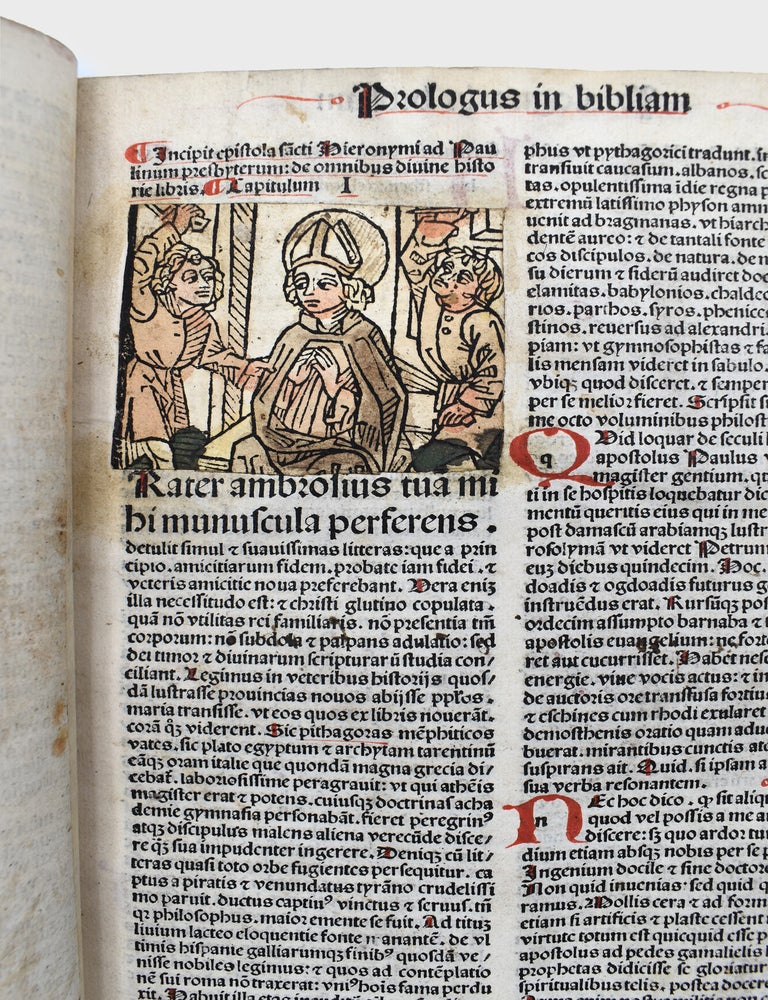 Prologus in bibliam
Incipit epistola sãcti Hieronymi ad Pau
linum presbyterum: de omnibus divine histo
rie libris. Capitulum I
Rater ambrosius tua mi
hi munuscula perferens.
detulit simul ⁊ suavissimas litteras: que a prin
cipio. amicitiarum fidem. probate iam fidei. ⁊
veteris amicitie nova preferebant. Vera eniz
illa necessitudo est: ⁊ christi glutino copulata.
quã nõ vtilitas rei familiaris. nõ presentia tm̃
corporum: nõ subdola ⁊ palpans adulatio: sed
dei timor ⁊ divinarum scripturarũ studia con/
ciliant. Legimus in veteribus historijs quos/
dã lustrasse provincias novos abijsse ppľos.
maria transisse. vt eos quos ex libris noverãt.
corã qȝ viderent. Sic pithagoras mẽphiticos
vates. sic plato egyptum ⁊ archytam tarentinũ
eãqȝ oram italie que quondã magna grecia di/
cebať. laboriosissime peragravit: vt qui athẽis
magister erat ⁊ potens. cuiusqȝ doctrinas acha
demie gymnasia personabãt. fieret peregrinꝰ
atqȝ discipulus malens aliena verecũde disce/
re qȝ sua impudenter ingerere. Deniqȝ cũ lit/
teras quasi toto orbe fugientes persequitur. ca
ptus a piratis ⁊ venundatus tyrãno crudelissi
mo paruit. ductus captivꝰ vinctus ⁊ servus. tñ
qꝛ philosophus. maior emente se fuit. Ad tituz
livium lacteo eloquentie fonte manantẽ. de vl
timis hispanie galliarumqȝ finibꝰ quosdã ve/
nisse nobiles legimus: ⁊ quos ad contẽplatio
nẽ sui roma nõ traxerat: vniꝰ hois fama perdu
xit. Habuit illa etas
phus vt pythagorici tradunt.
transivit caucasum. albanos.
tas. opulentissima ĩdie regna
extremũ latissimo physon
venit ad bragmanas. vt
dentẽ aureo: ⁊ de tantali fonte
cos discipulos. de natura.
su dierum ⁊ siderũ audiret
elamitas. babylonios.
rios. parthos. syros.
stinos. reversus ad
piam: vt gymnosophistas ⁊
lis mensam videret in sabulo.
vbiqȝ quod disceret. ⁊ semper
per se melior fieret. Scripsit
me octo voluminibus
Q q Vid loquar de seculi
apostolus Paulus
magister gentium.
ti in se hospitis loquebatur
mentũ queritis eius qui in
post damascũ arabiamqȝ
rosolymã vt videret Petrum
euz diebus quindecim. Hoc
doadis ⁊ ogdoadis futurus
instruẽdus erat. Rursũqȝ
ordecim assumpto barnaba ⁊
apostolis evangelium: ne
ret aut cucurrisset. Habet
energie. vive vocis actus: ⁊ in
de auctoris ore transfusa
⁊ eschines cum rhodi
demosthenis oratio quam
buerat. mirantibus cunctis
suspirans ait. Quid. si ipsam
sua verba resonantem.
N n Ec hoc dico. qȝ sit
quod vel possis a me
discere: sȝ quo ardor
dium etiam absqȝ nobis per
Ingenium docile ⁊ sine
Non quid invenias. sed quid
ramus. Mollis cera ⁊ ad
etiam si artificis ⁊ plaste cessent
virtute totum est quicquid esse
apostolus ad pedes gamalielis
prophetas didicisse se
spiritualibus telis. postea